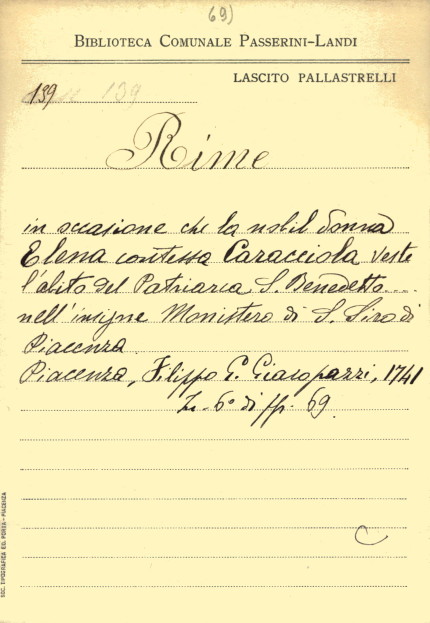 69)
BIBLIOTECA COMUNALE PASSERINI-LANDI
LASCITO PALLASTRELLI
139 139
Rime
in occasione che la nobil donna
Elena contessa Caracciola veste
l'abito del Patriarca S. Benedetto....
nell'insigne Monistero di S. Siro di
Piacenza.
Piacenza, Filippo G. Giacopazzi, 1741
In-6° di pp. 69.
C
SOC. TIPOGRAFICA ED. PORTA - PIACENZA